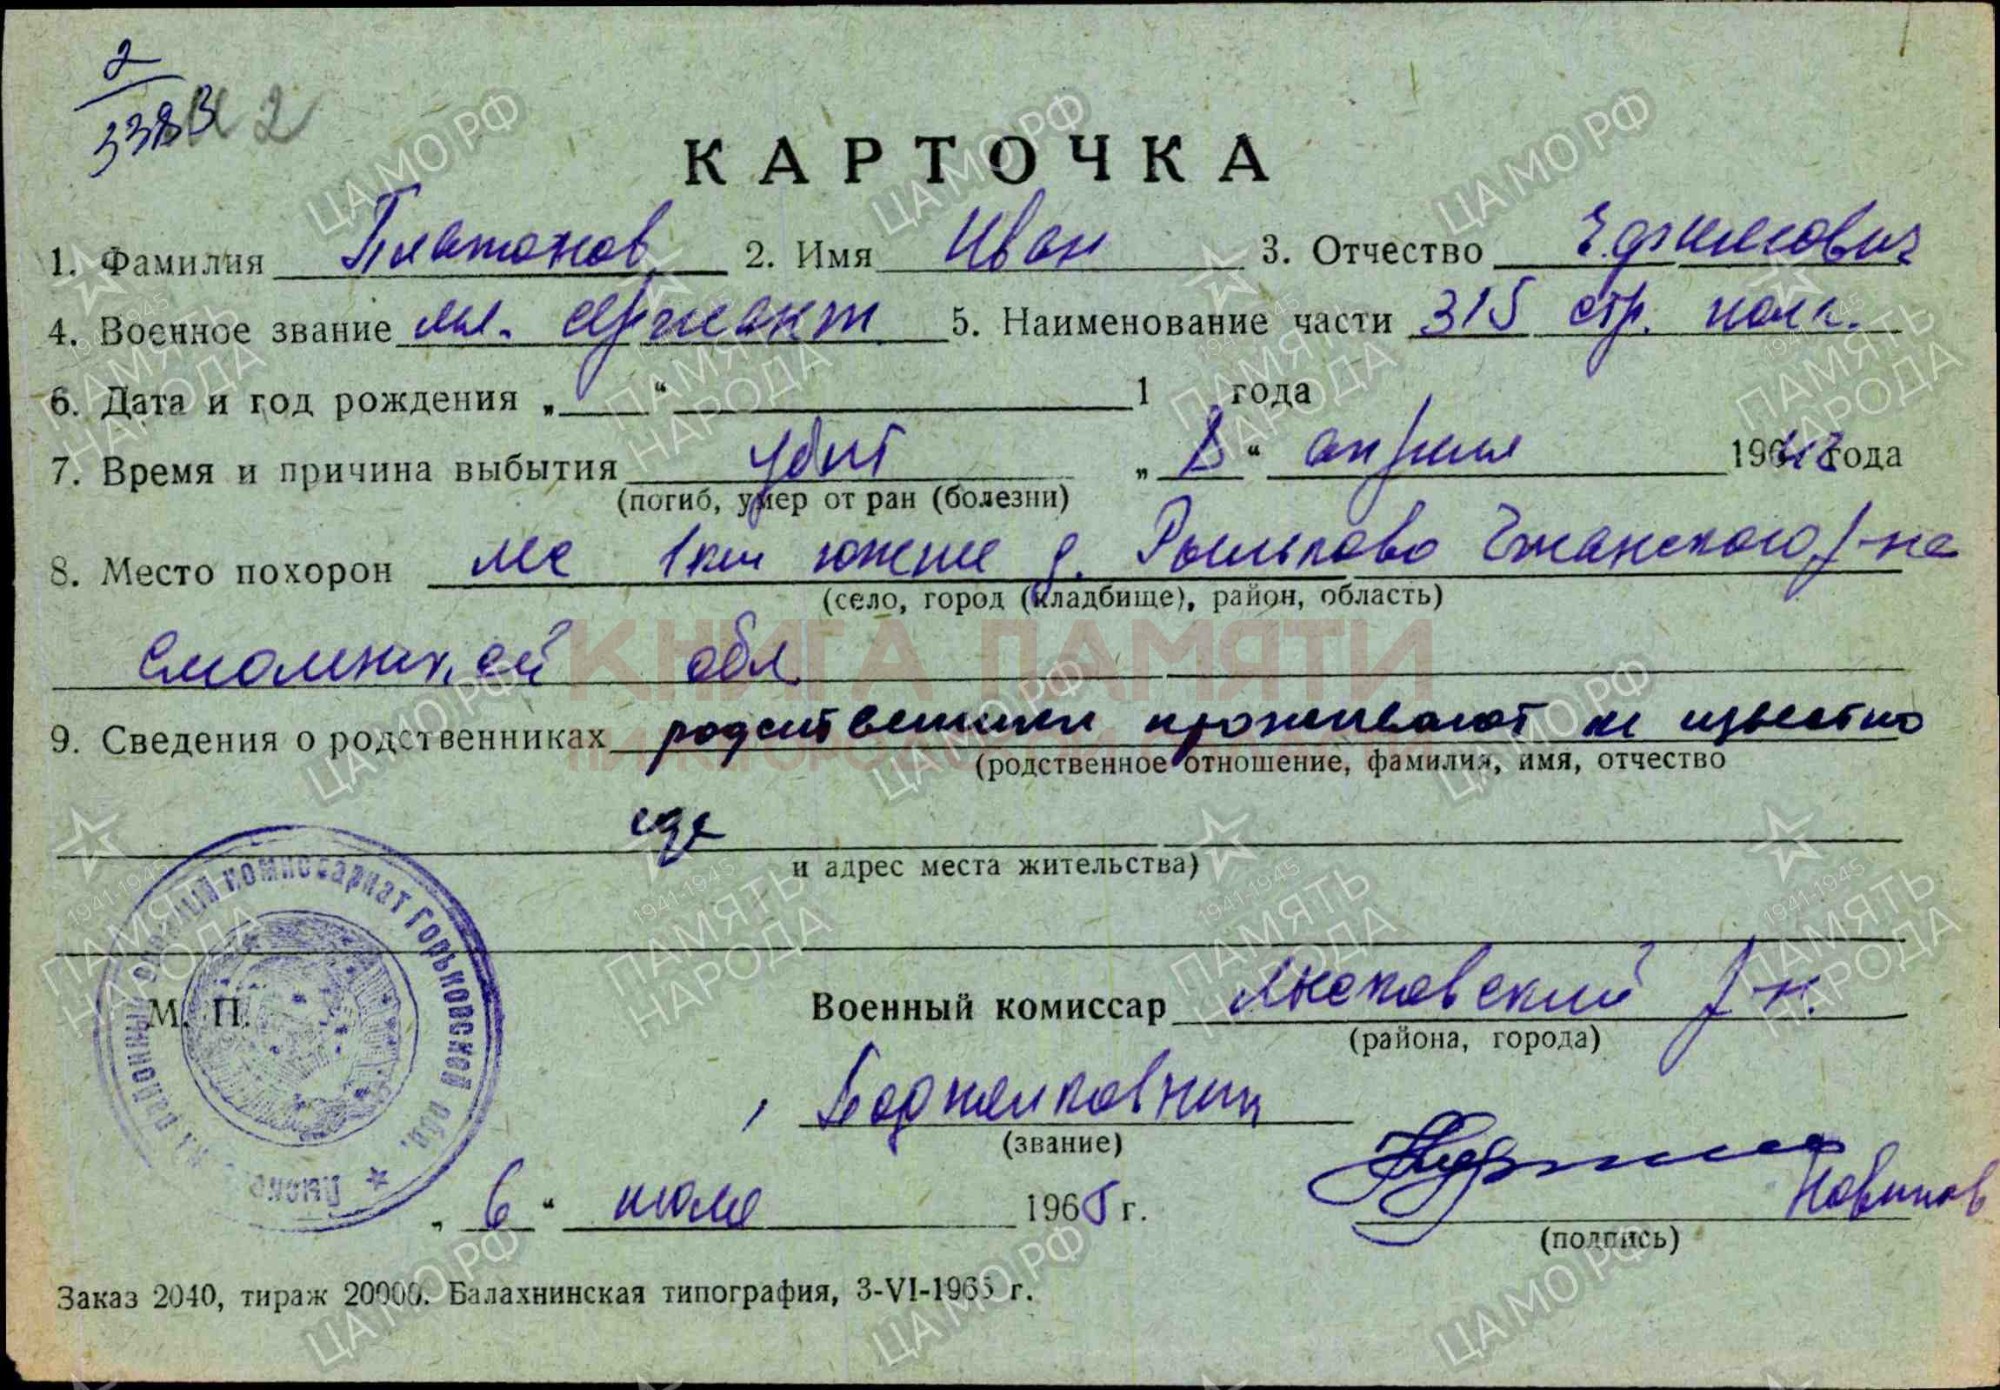 2
338
2
КАРТОЧКА
1. Фамилия Платонов 2. Имя Иван 3. Отчество Ефимович
4. Военное звание мл. сержант 5. Наименование части 315 стр. полк.
6. Дата и год рождения „ “ 1 года
7. Время и причина выбытия убит „ 8 “ апреля 1943 года
(погиб, умер от ран (болезни)
8. Место похорон 1 км южнее д. Рыльково р-на
(село, город (кладбище), район, область)
Смоленской обл
9. Сведения о родственниках родственники проживают не известно
(родственное отношение, фамилия, имя, отчество
где
и адрес места жительства)
М. П.
районный военный комиссариат Горьковской обл.
Военный комиссар Лысковский р-н.
(района, города)
Подполковник
(звание)
Новиков
„ 6 “ июля 1965 г.
(подпись)
Заказ 2040, тираж 20000. Балахнинская типография, 3-VI-1965 г.
КНИГА ПАМЯТИ
НИЖЕГОРОДСКОЙ ОБЛАСТИ
ЦАМО РФ
1941-1945
ПАМЯТЬ НАРОДА